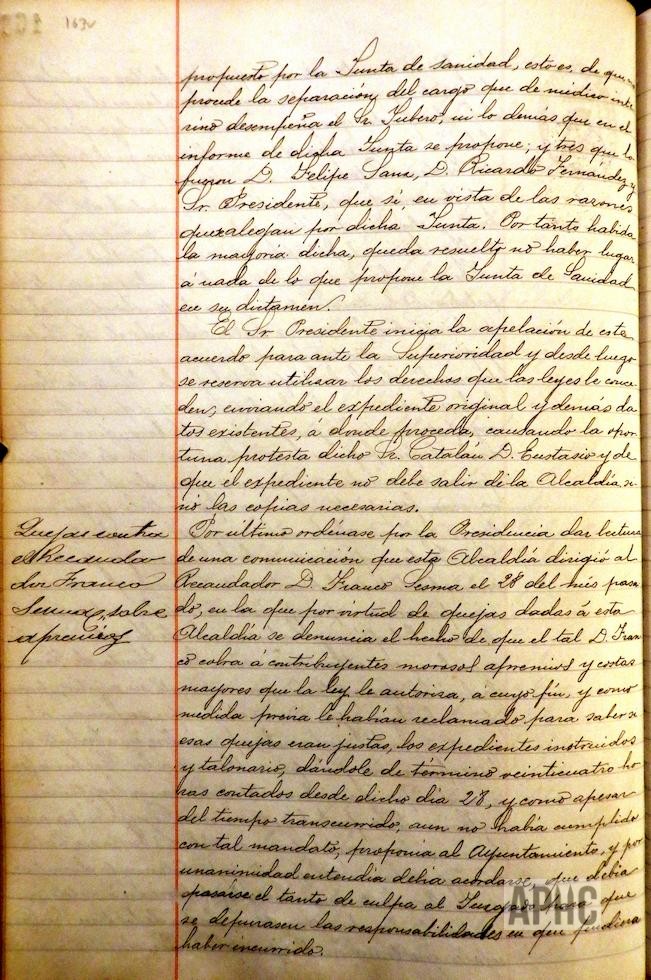 163v
propuesto por la Junta de sanidad, esto es, de que no
procede la separación del cargo que de médico inte
rino desempeña el Sr. Subero, ni lo demás que en el
informe de dicha Junta se propone; y tres que lo
fueron D. Felipe Sanz, D. Ricardo Fernández y
Sr. Presidente, que sí, en vista de las razones
que alegan por dicha Junta. Por tanto habida
la mayoría dicha, queda resuelto no haber lugar
á nada de lo que propone la Junta de Sanidad
en su dictamen.
El Sr. Presidente inicia la apelación de este
acuerdo para ante la Superioridad y desde luego
se reserva utilisar los derechos que las leyes le conce
den, enviando el expediente original y demás da
tos existentes, á donde proceda, causando la opor
tuna protesta dicho Sr. Catalán D. Eustasio y de
que el expediente no debe salir de la Alcaldía si
nó las copias necesarias.
Quejas contra
el Recauda
dor Franco
Sesma, sobre
apremios
Por último ordénase por la Presidencia dar lectura
de una comunicación que esta Alcaldía dirigió al
Recaudador D. Franco Sesma el 28 del mes pasa
do, en la que por virtud de quejas dadas á esta
Alcaldía se denuncia el hecho de que el tal D. Fran
co cobra á contribuyentes morosos apremios y costas
mayores que la ley le autorisa, á cuyo fin, y como
medida previa le habían reclamado para saber si
esas quejas eran justas, los expedientes instruidos
y talonario, dándole de término veinticuatro ho
ras contados desde dicho día 28, y como apesar
del tiempo transcurrido, aun no había cumplido
con tal mandato, proponia al Ayuntamiento, y por
unanimidad entendia debia acordarse, que debia
pasarse el tanto de culpa al Juzgado para que
se depurasen las responsabilidades en que pudiera
haber incurrido.
APHC